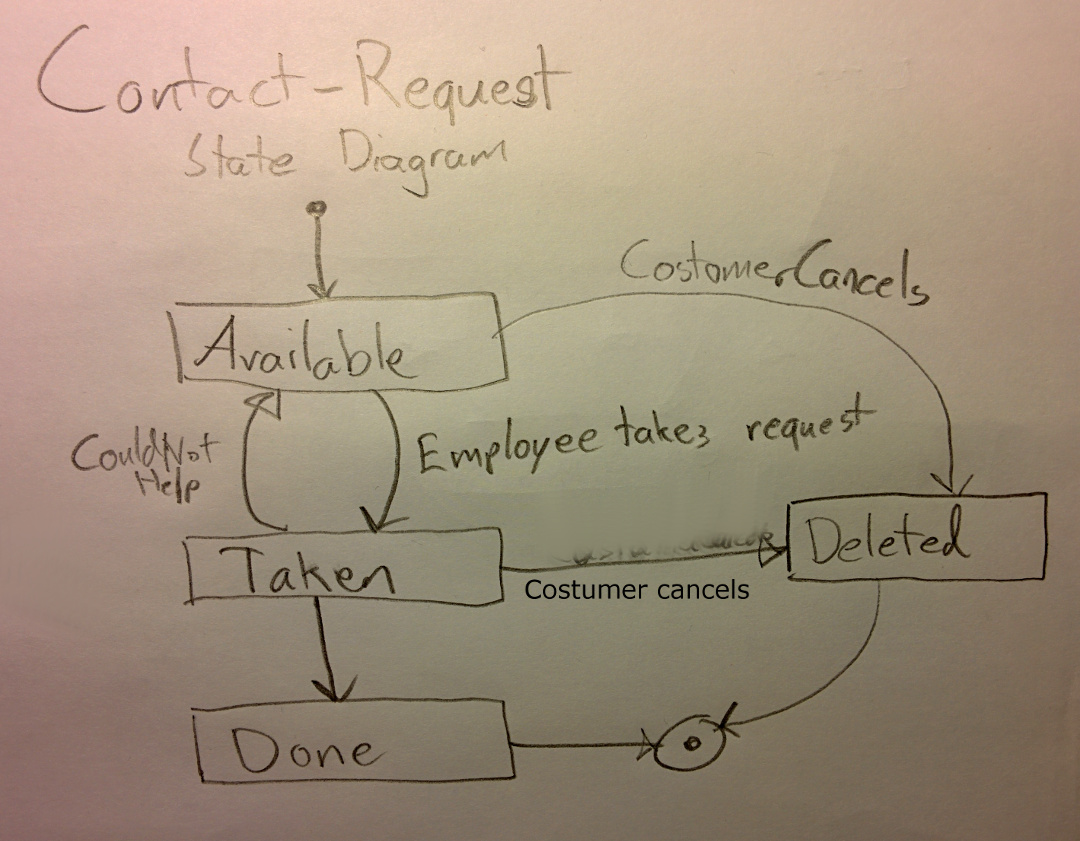 Contact-Request
State Diagram
CostomerCancels
Available
CouldNot
Help
Employee takes request
Taken
Deleted
Costumer cancels
Done